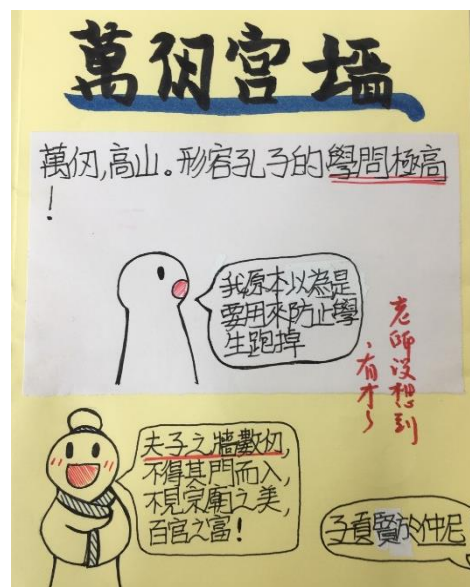 萬仞宮墻
萬仞,高山。形容孔子的學問極高
!
我原本以為是
要用來防止學
生跑掉
老師沒想到
,有才~
夫子之牆數仞,
不得其門而入,
不見宗廟之美,
百官之富!
子貢賢於仲尼